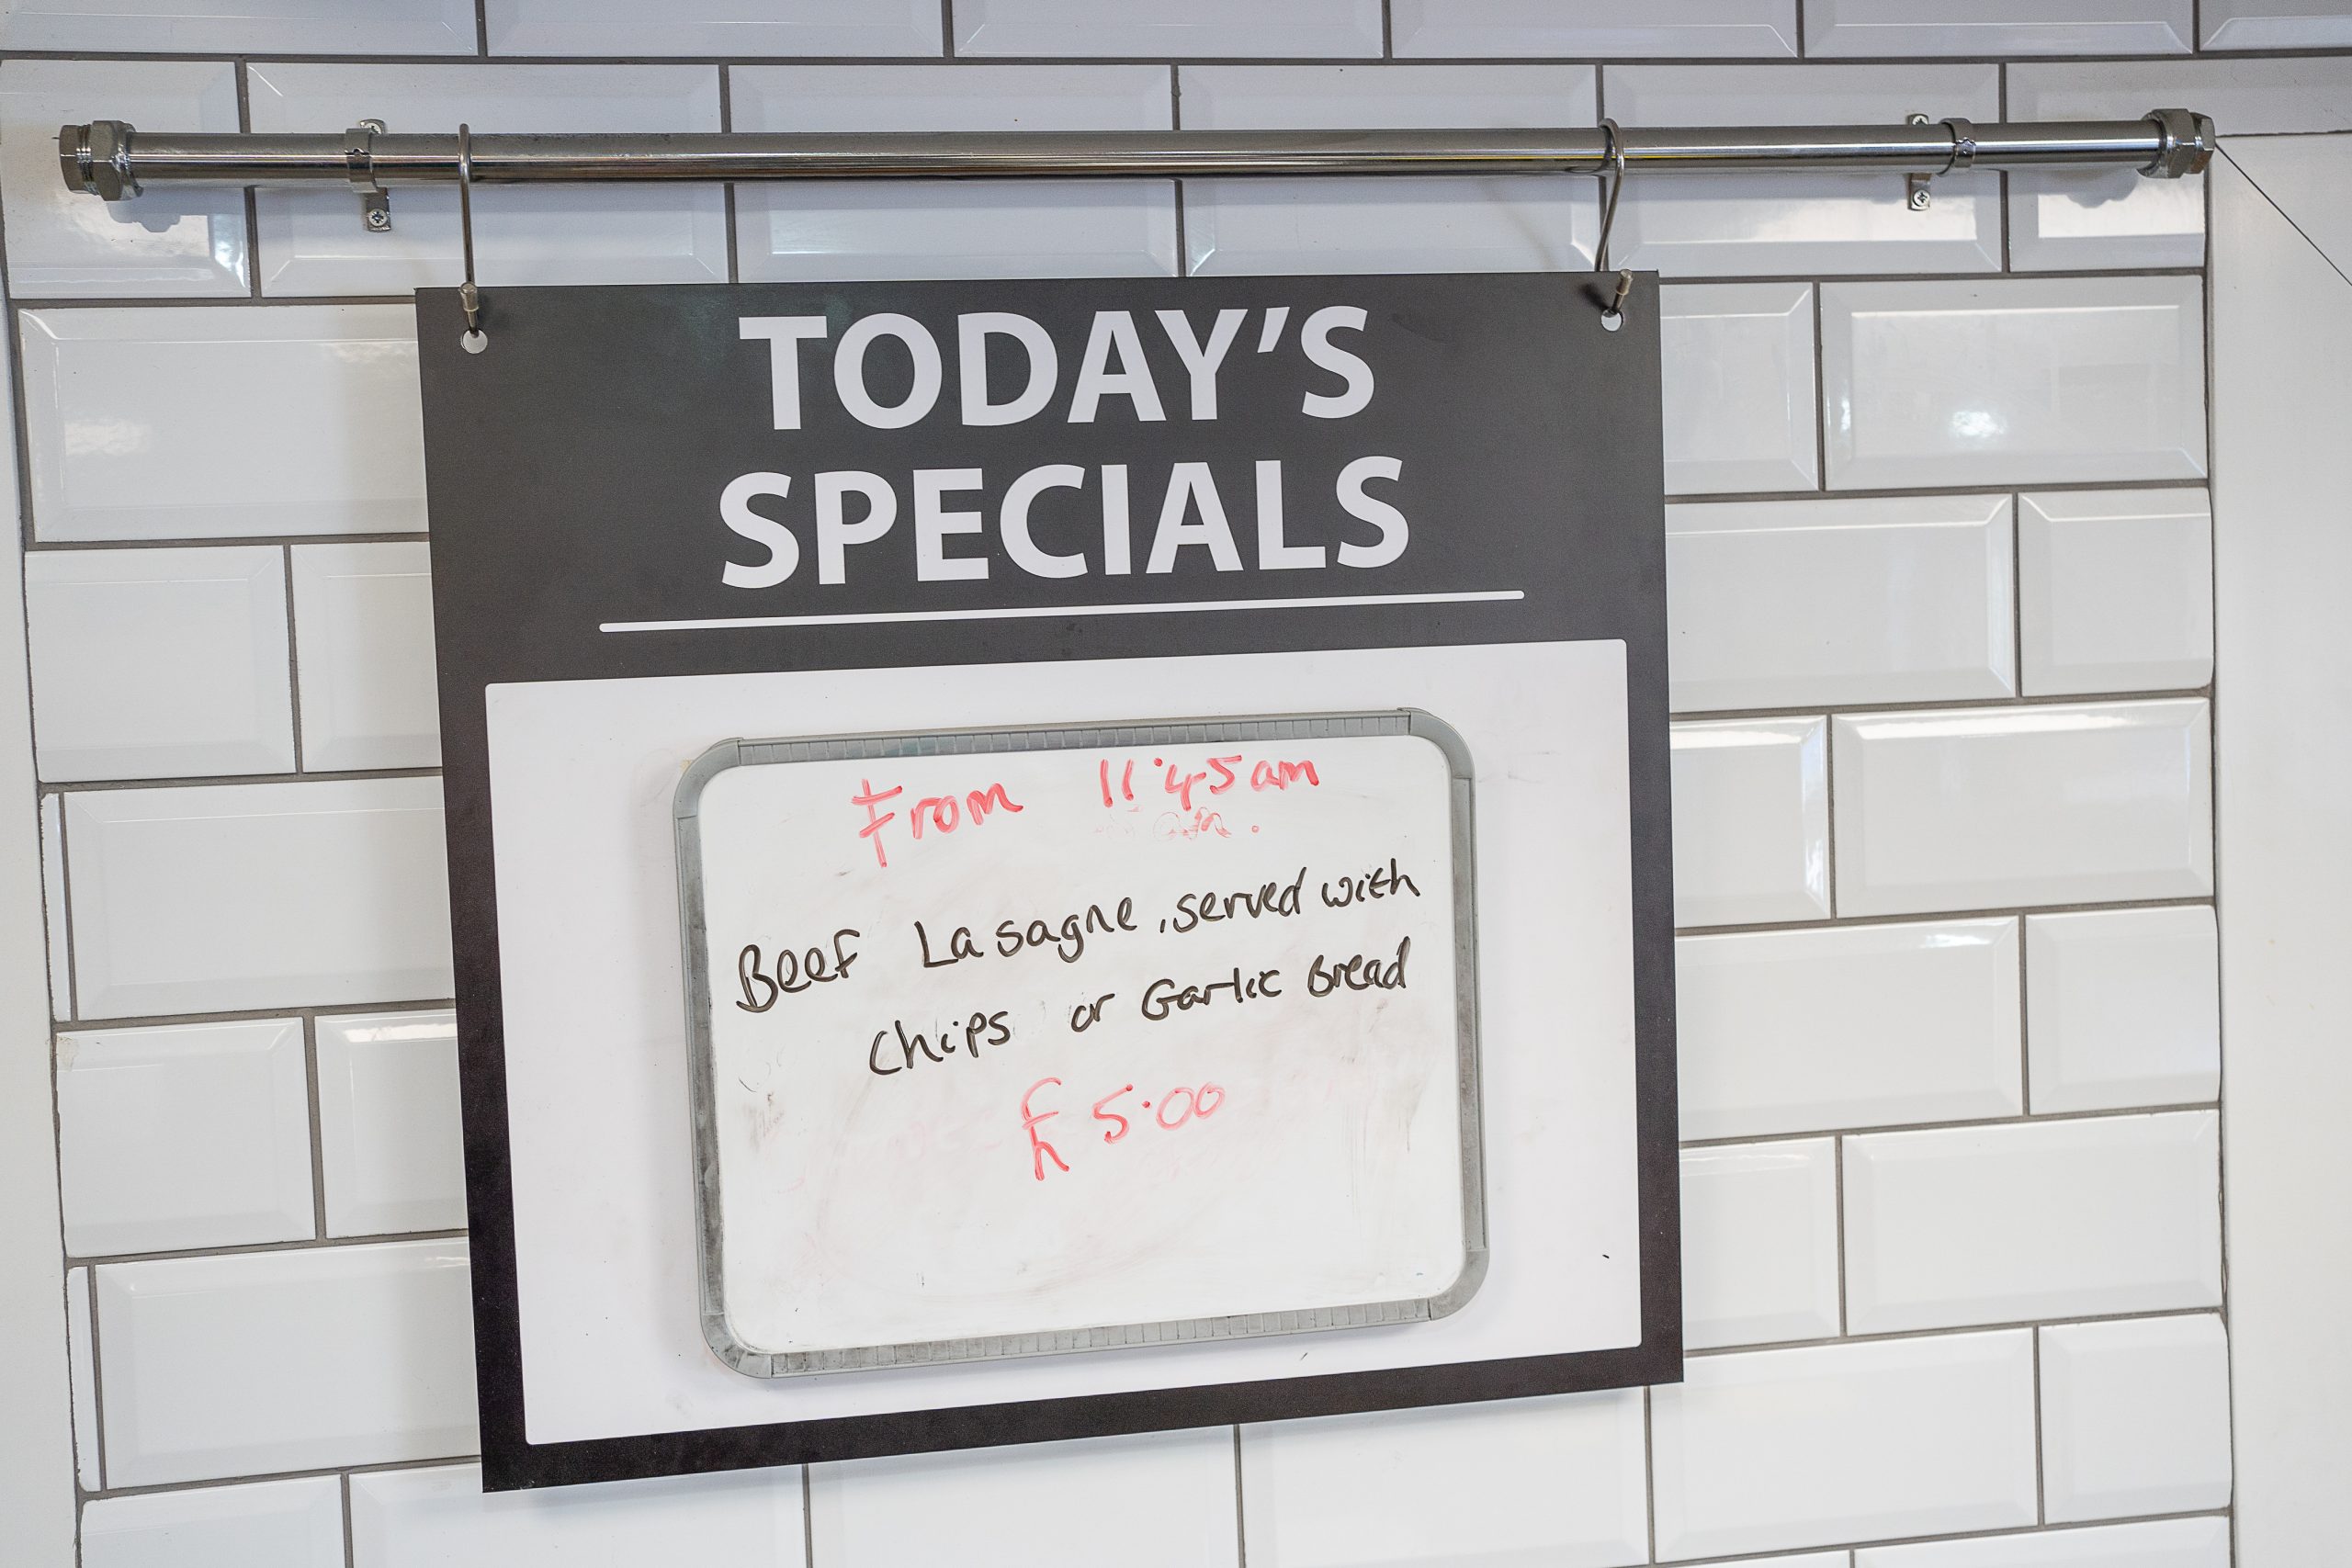 TODAY'S
SPECIALS
From 11·45am
Beef Lasagne, served with
chips or Garlic Bread
£5·00